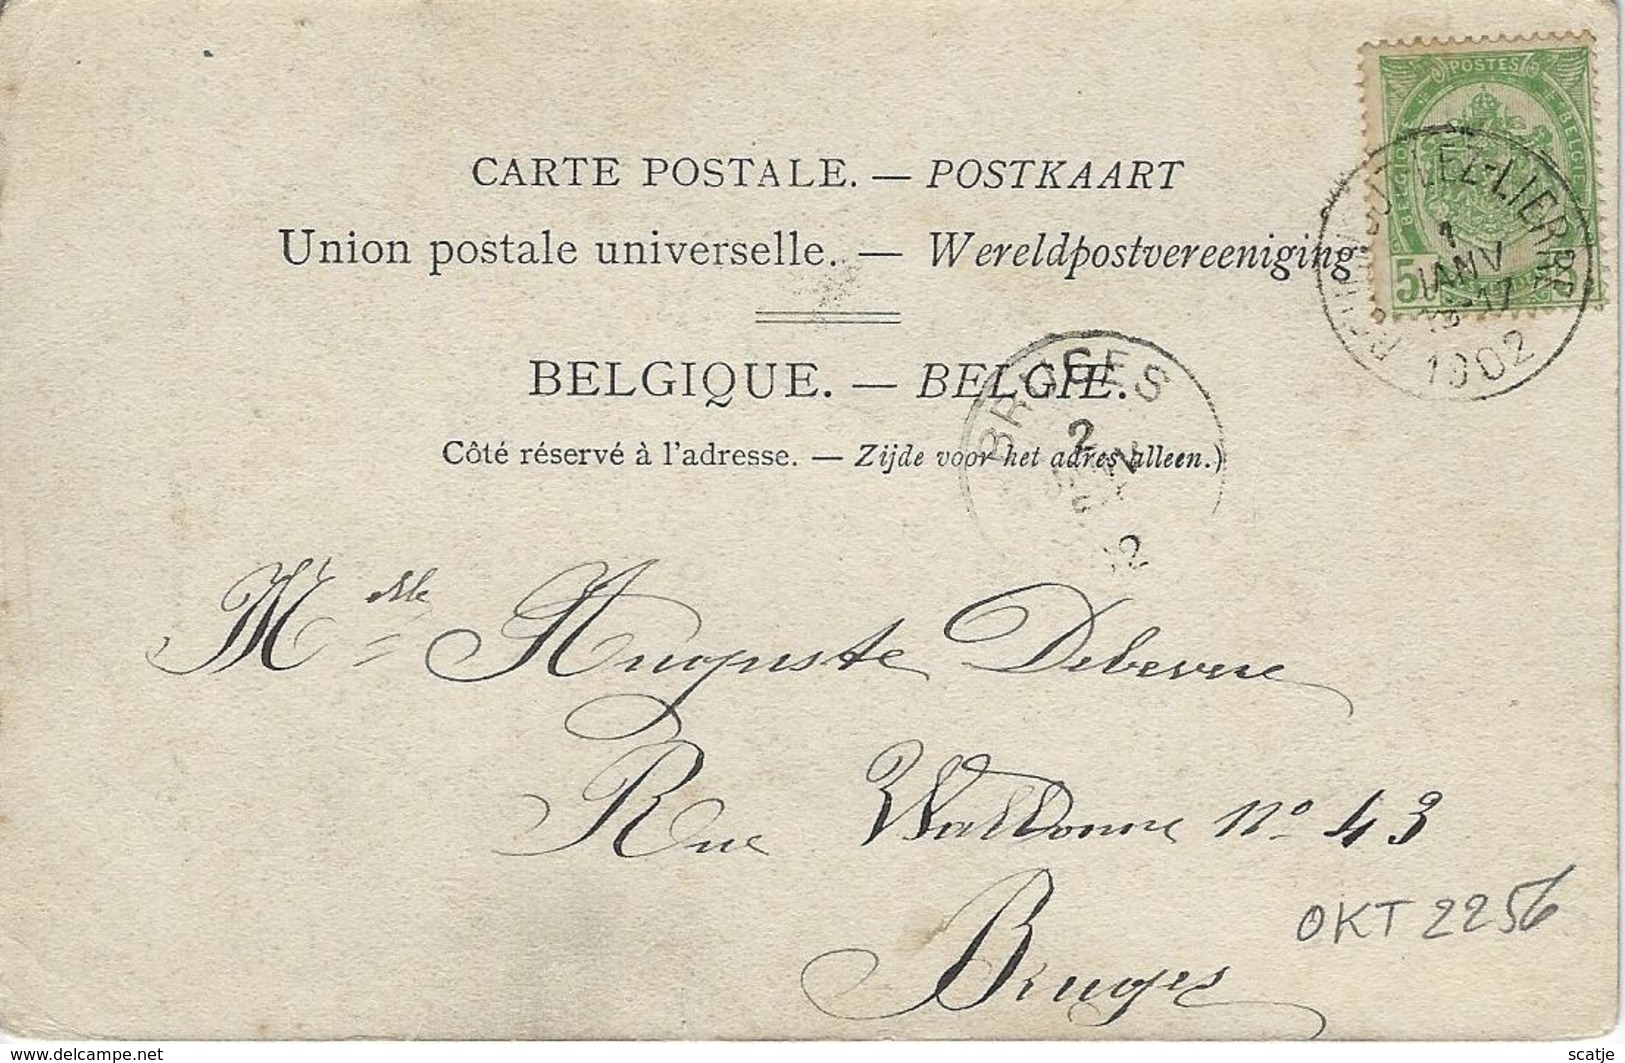 POSTES
BELGIQUE
BELGIE
5
LEZ-LIERRE
1
JANV
1902
CARTE POSTALE. — POSTKAART
Union postale universelle. — Wereldpostvereeniging
BELGIQUE. — BELGIE.
Côté réservé à l'adresse. — Zijde voor het adres alleen.)
BRUGES
2
Mdlle Auguste
Rue Wallonne No 43
Bruges
OKT 2256
www.delcampe.net
scatje